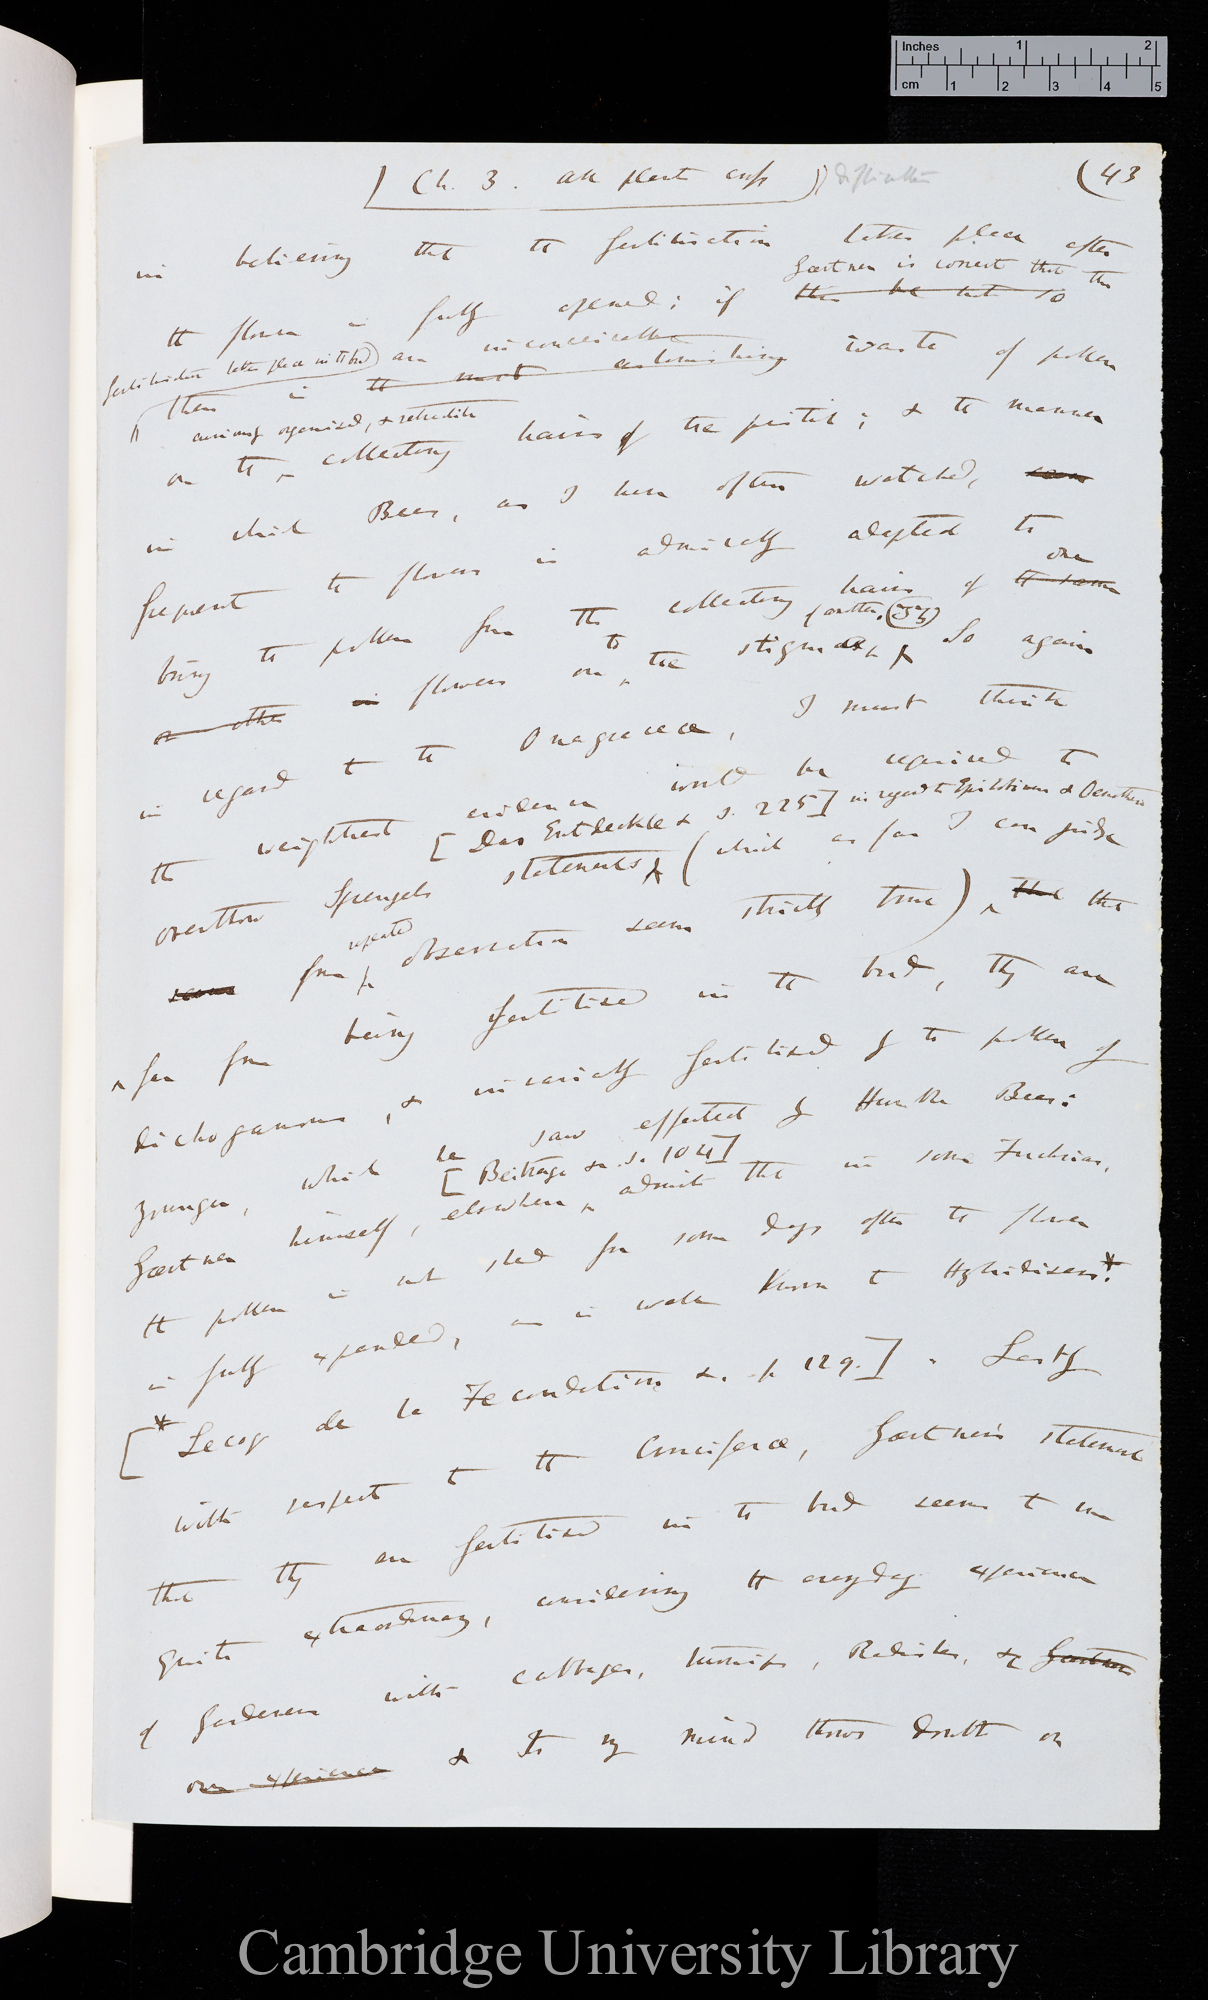 Inches 1 2
cm 1 2 3 4 5
Ch. 3. all plants cross
(43
in believing that the fertilisation takes place after
Gaertner is correct that the
the flower is fully opened; if this be not so
fertilisation takes place in the bud) an inconceivable
there is the most astonishing waste of pollen
curiously organised, & retractile
on the collecting hairs of the pistil; & the manner
in which Bees, as I have often watched, seem
frequent the flowers is admirably adapted to
one
bring the pollen from the collecting hairs of the same
of another,
or other in flowers on to the stigmas. So again
in regard to the Onagraceæ, I must think
the weightiest evidence would be required to
[Das Entdeckte & s. 225] in regard to Epilobium & Oenothera
overthrow Sprengel's statements (which as far I can judge
repeated
seems from observation seem strictly true) that that
far from being fertilised in the bud, they are
dichogamous, & invariably fertilised by the pollen of
younger, which he saw effected by Humble Bees:
[Beiträge &c. s. 104]
Gaertner himself, elsewhere admits that in some Fuchsias,
the pollen is not shed for some days after the flower
is fully expanded, as is well known to Hybridisers*.
[* Lecoq de la Fecondation &c. p 129.]. Lastly
with respect to the Cruciferæ, Gaertner's statement
that they are fertilised in the bud seems to me
quite extraordinary, considering the everyday experience
of Gardeners with cabbages, turnips, Radishes, &c Gaertner
own experience & to my mind throws doubt on
Cambridge University Library